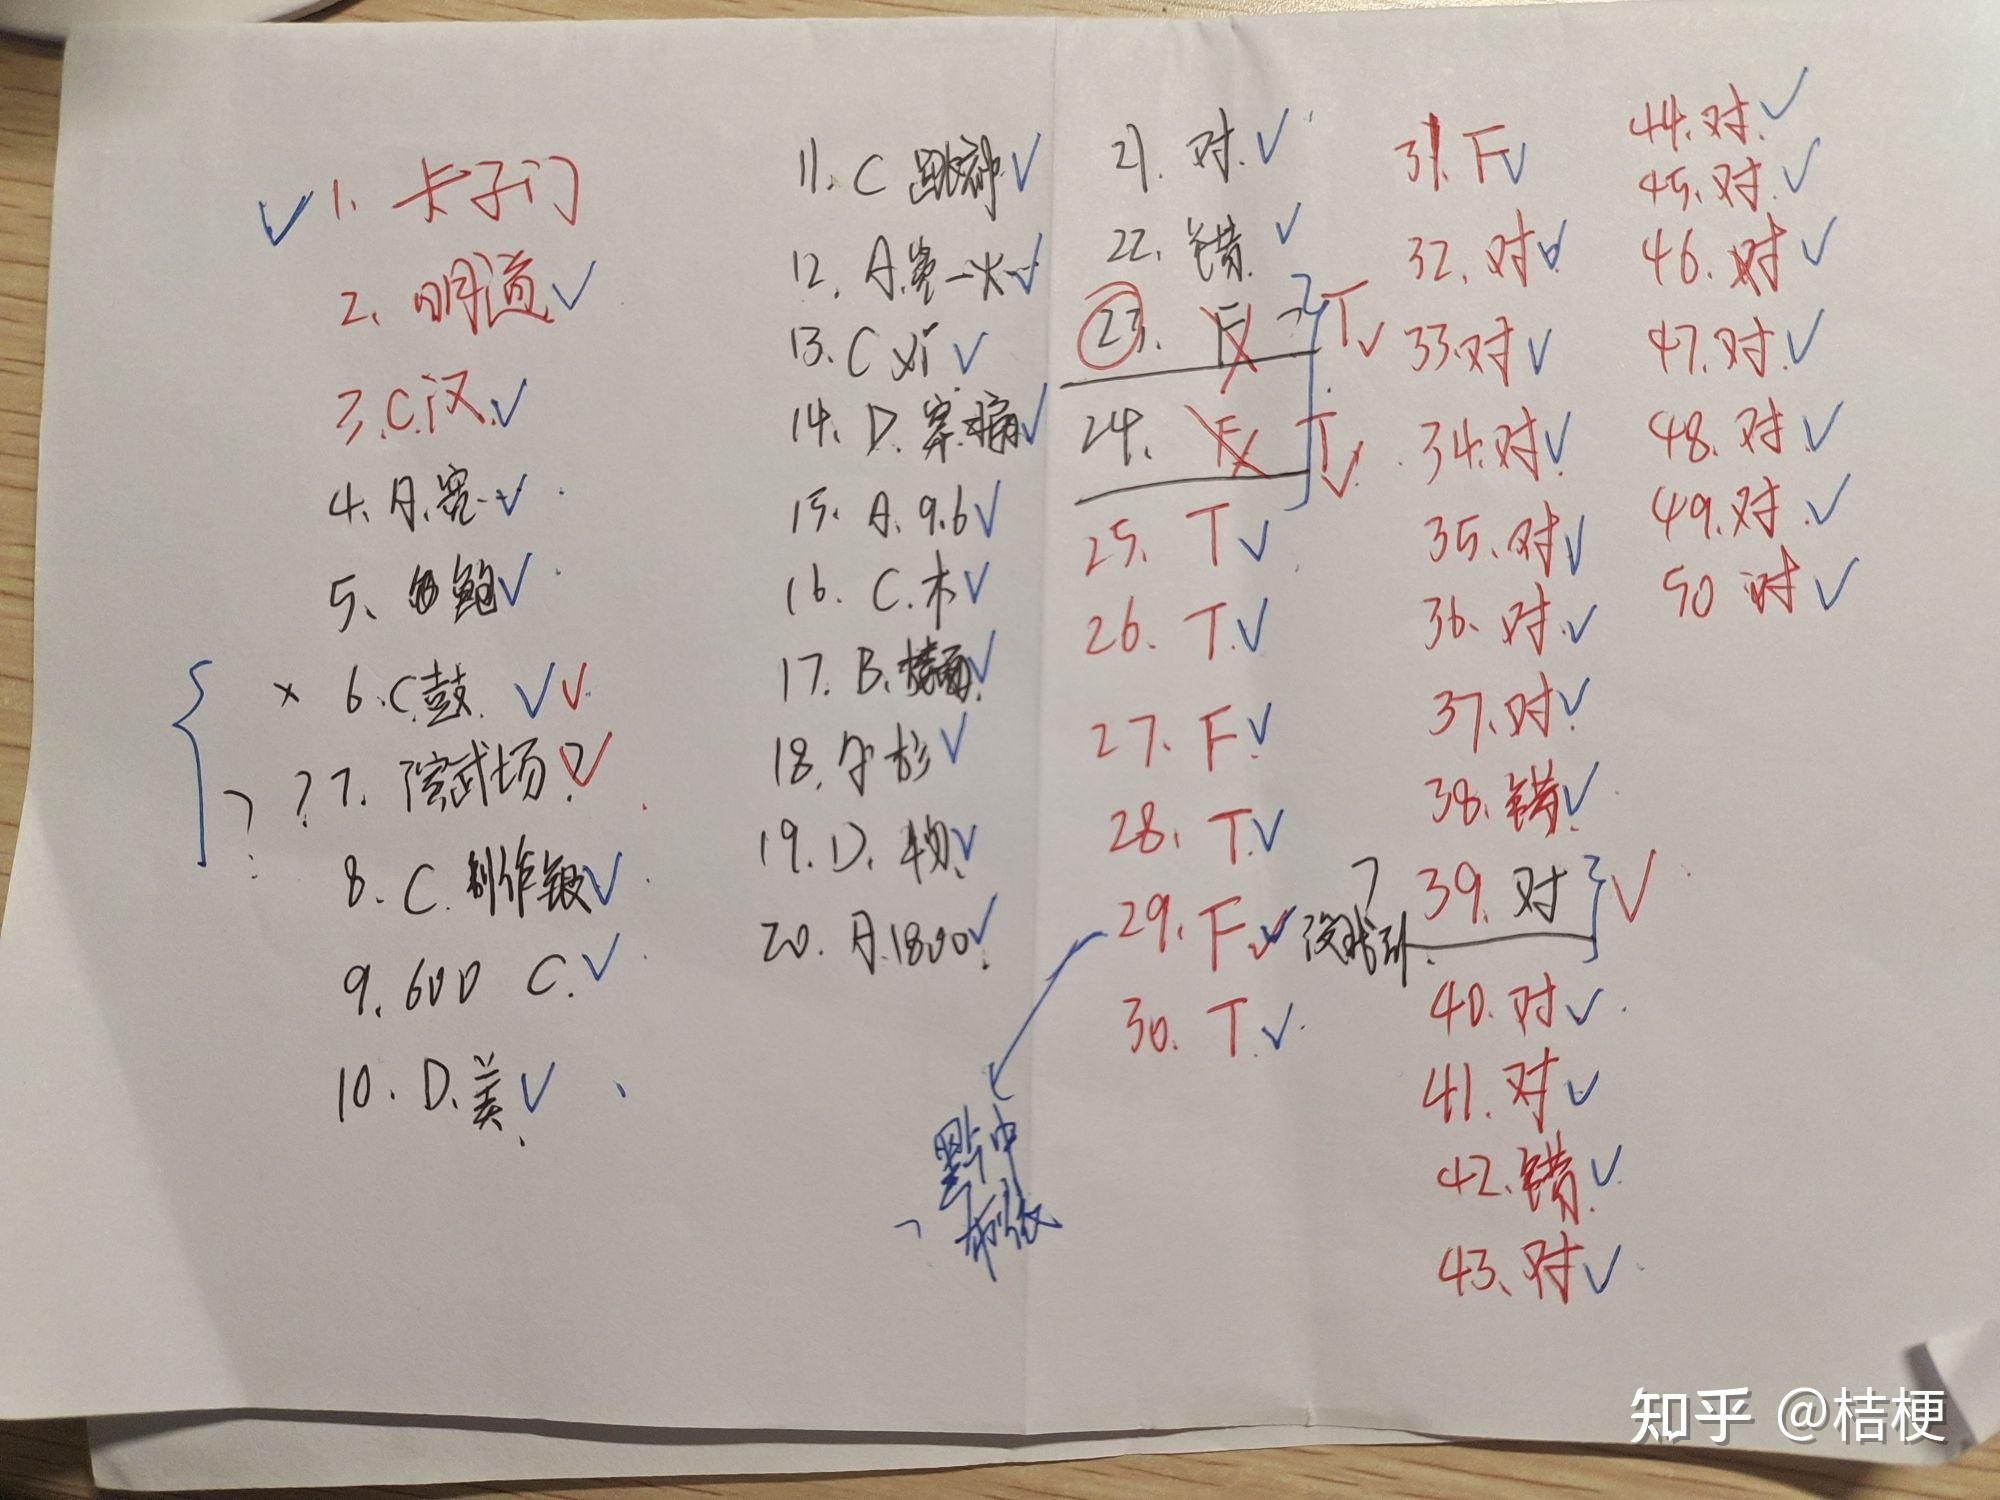 1. 卡子门
2. 明道
3. C.汉
4. A.
5.
6. C.鼓
? 7. 演武场?
8. C. 制作银
9. 600 C.
10. D.美
11. C
12. A. 一火
13. C
14. D.
15. A. 9.6
16. C. 木
17. B.
18. A 杉
19. D.
20. A. 1800
21. 对.
22. 错.
23. F T
24. F T
25. T
26. T.
27. F
28. T.
29. F
30. T.
黔中
31. F
32. 对
33. 对
34. 对
35. 对
36. 对
37. 对
38. 错
没找到 39. 对
40. 对
41. 对
42. 错
43. 对
44. 对
45. 对
46. 对
47. 对
48. 对
49. 对
50 对
知乎 @桔梗